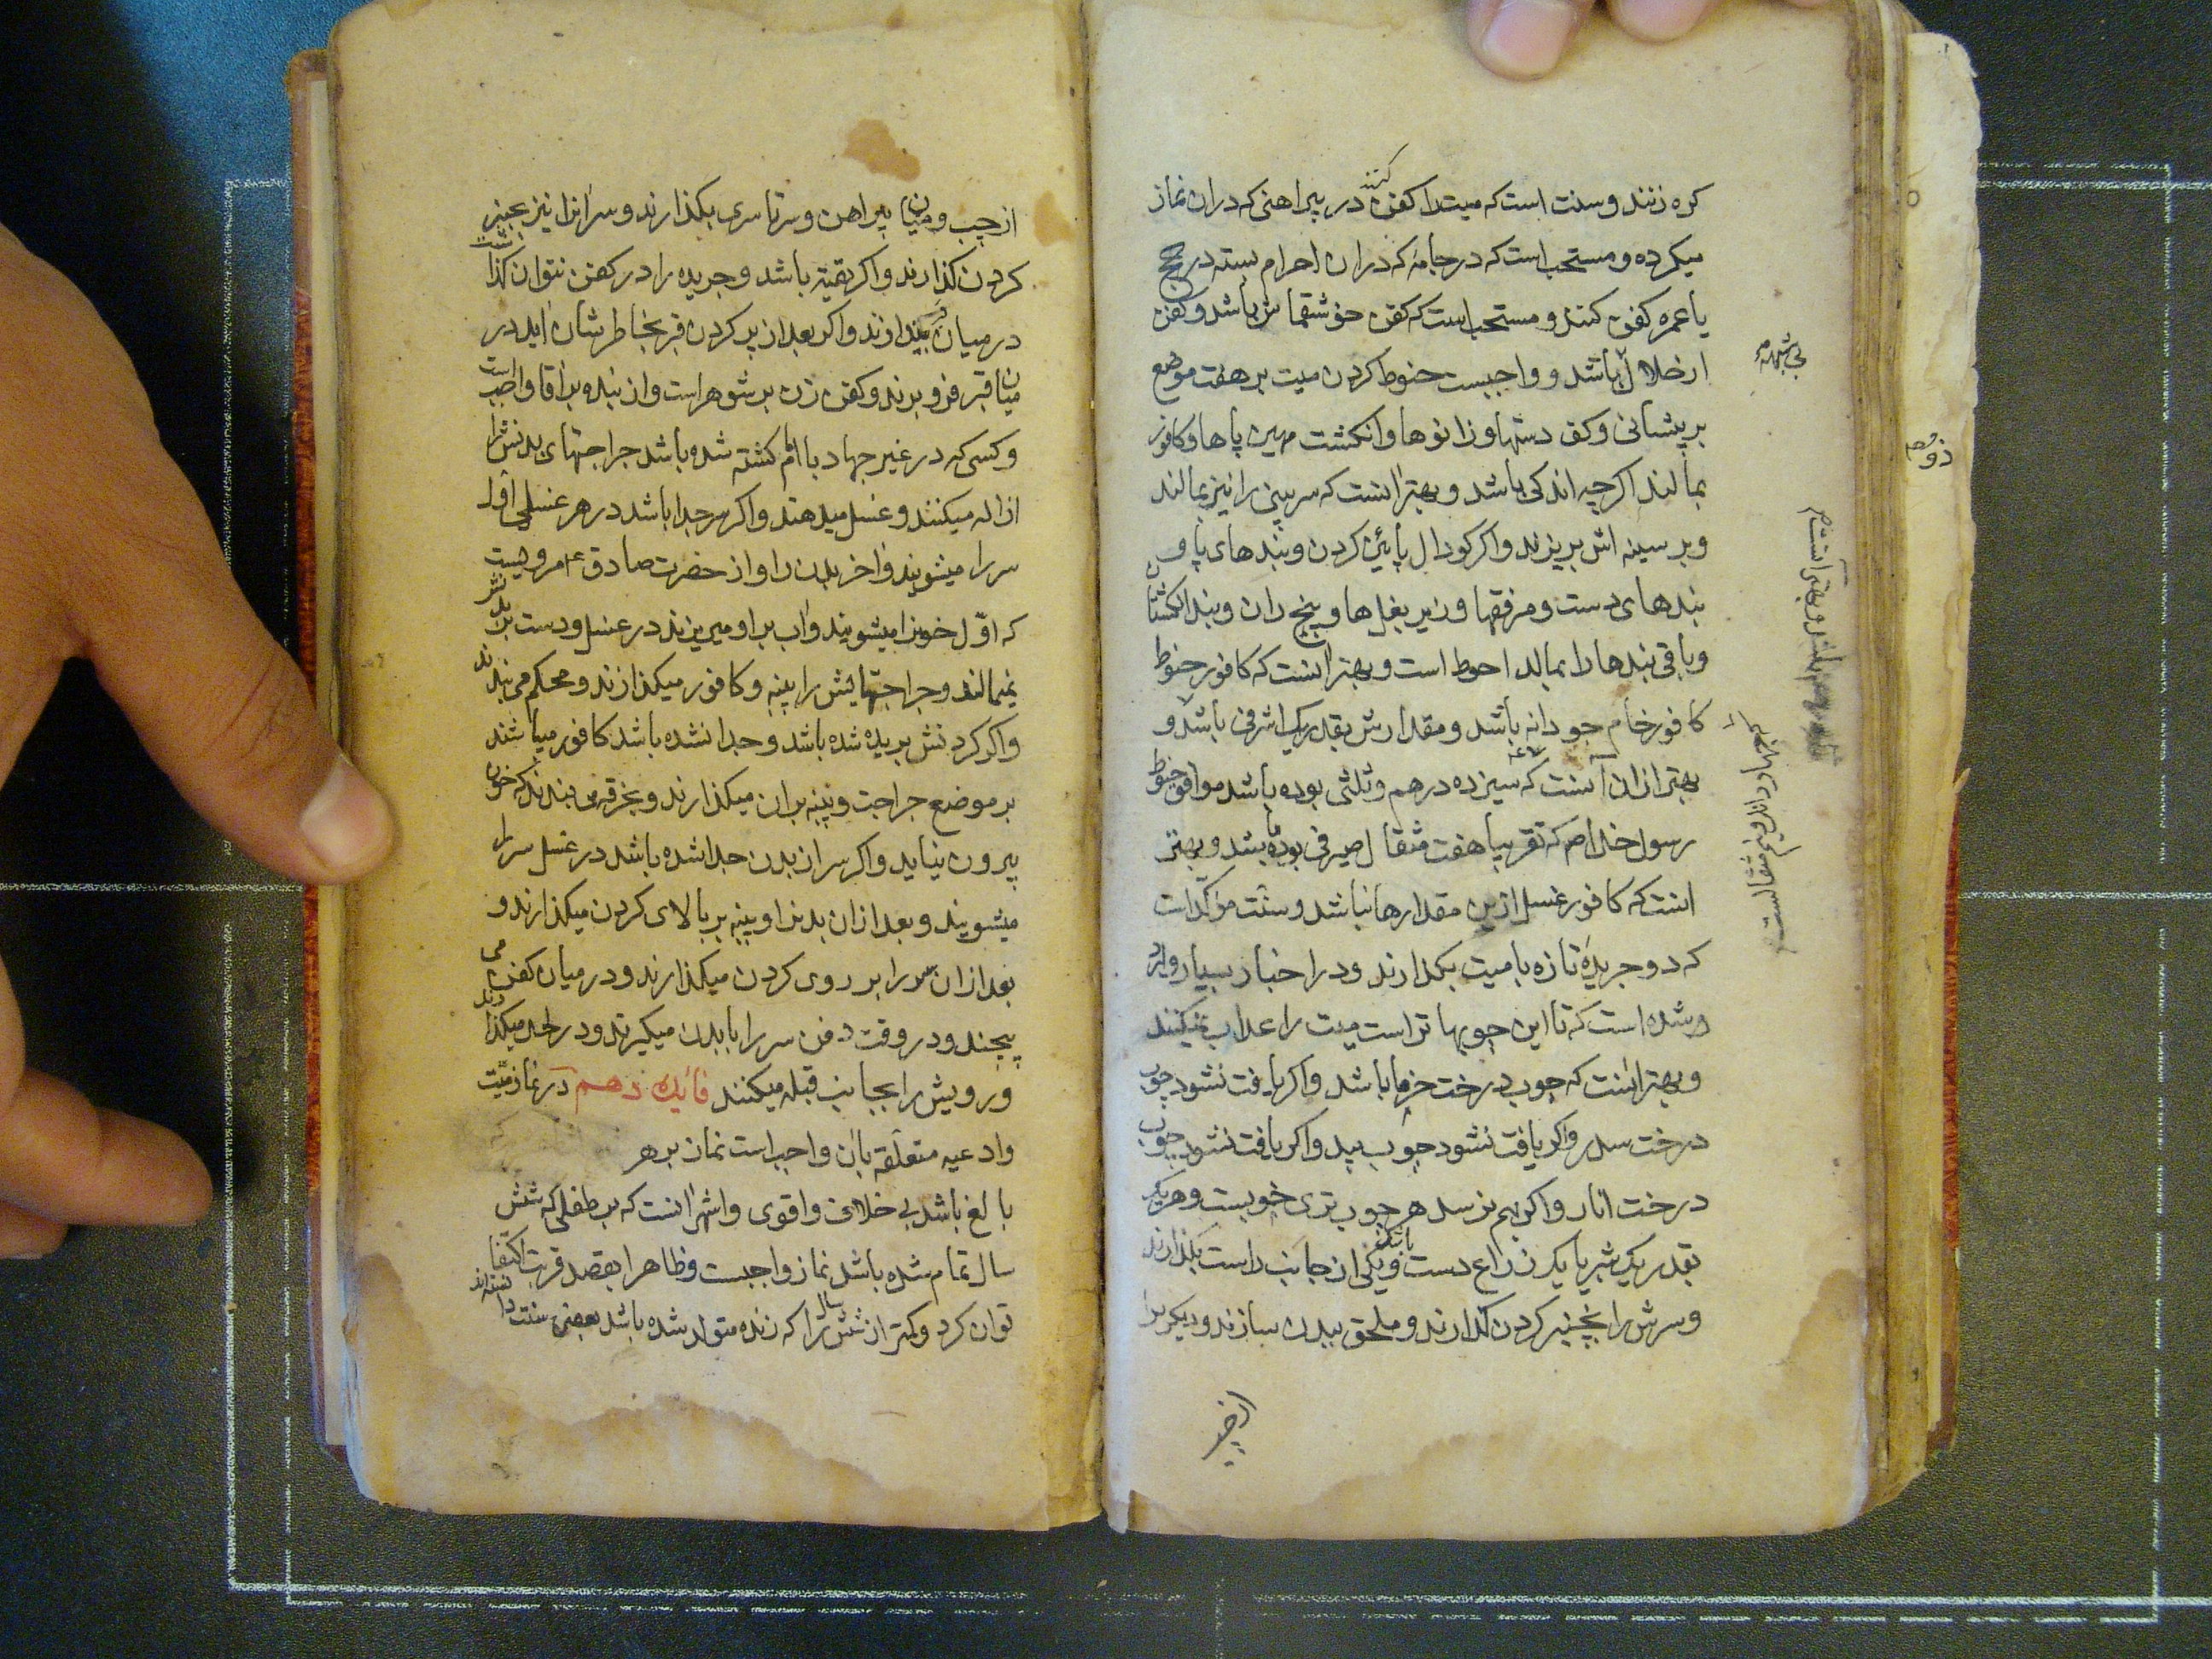 کره زنند و سنت است که میت را کفن کنند در پیراهنی که دران نماز
میکرده و مستحب است که در جامهٔ که دران احرام بسته در حج
یا عمره کفن کنند و مستحب است که کفن خوشقماش باشد و کفن
از حلال باشد و واجبست حنوط کردن میت بر هفت موضع
بر پیشانی و کف دستها و زانوها و انکشت مهین پاها و کافور
بمالند اکرچه اندکی باشد و بهتر انست که سر بینی را نیز بمالند
و بر سینه اش بریزند و اکر کودال پائین کردن و بندهای پا و
بندهای دست و مرفقها و زیر بغلها و بیخ ران و بند انکشتان
و باقی بندها را بمالد احوط است و بهتر انست که کافور حنوط
کافور خام جودانه باشد و مقدارش بقدر یک اشرفی باشد و
بهتر ازان آنست که سیزده درهم و ثلثی بوده باشد موافق حنوط
رسول خدا ص که تقریبا هفت مثقال صیرفی بوده باشد و بهتر
انست که کافور غسل ازین مقدارها نباشد و سنت مؤکد است
که دو جریدهٔ تازه با میت بکذارند و در اخبار بسیار وارد
شده است که تا این چوبها تر است میت را عذاب نمیکنند
و بهتر انست که چوب درخت خرما باشد و اکر یافت نشود چوب
درخت سدر و اکر یافت نشود چوب بید و اکر یافت نشود چوب
درخت انار و اکر بهم نرسد هر چوب تری خوبست و هر یک
بقدر یک شبر یا یک ذراع دست باشد و یکی از جانب راست بکذارند
و سرش را بچنبر کردن کذارند و ملحق ببدن سازند و دیکریرا
بی شبهه
از چپ و میان پیراهن و سرتاسری بکذارند و سرانرا نیز بچنبر
کردن کذارند و اکر تقیه باشد و جریده را در کفن نتوان کذاشت
در میان قبر بیندازند و اکر بعد از پر کردن قبر بخاطرشان اید در
میان قبر فرو برند و کفن زن بر شوهر است و از بنده بر اقا واجب است
و کسی که در غیر جهاد با امام کشته شده باشد جراحتهای بدنش را
ازاله میکنند و غسل میدهند و اکر سر جدا باشد در هر غسلی اول
سر را میشویند و اخر بدن را و از حضرت صادق ع مرویست
که اوّل خونرا میشویند و اب بر او میریزند در غسل و دست بر بدنش
نمیمالند و جراحتهایش را پنبه و کافور میکذارند و محکم می بندند
و اکر کردنش بریده شده باشد و جدا نشده باشد کافور میپاشند
بر موضع جراحت و پنبه بران میکذارند و بخرقه می بندند که خون
بیرون نیاید و اکر سر از بدن جدا شده باشد در غسل سر را
میشویند و بعد ازان بدنرا و پنبه بر بالای کردن میکذارند و
بعد ازان سر را بر روی کردن میکذارند و در میان کفن می
پیچند و در وقت دفن سر را با بدن میکیرند و در لحد میکذارند
و رویش را بجانب قبله میکنند فائده دهم در نماز میّت
و ادعیه متعلّقه بان واجب است نماز بر هر
بالغ باشد بی خلاف و اقوی و اشهر انست که بر طفلی که شش
سال تمام شده باشد نماز واجبست و ظاهرا بقصد قربت اکتفا
توان کرد و کمتر از شش سال را که زنده متولد شده باشد بعضی سنت دانسته اند